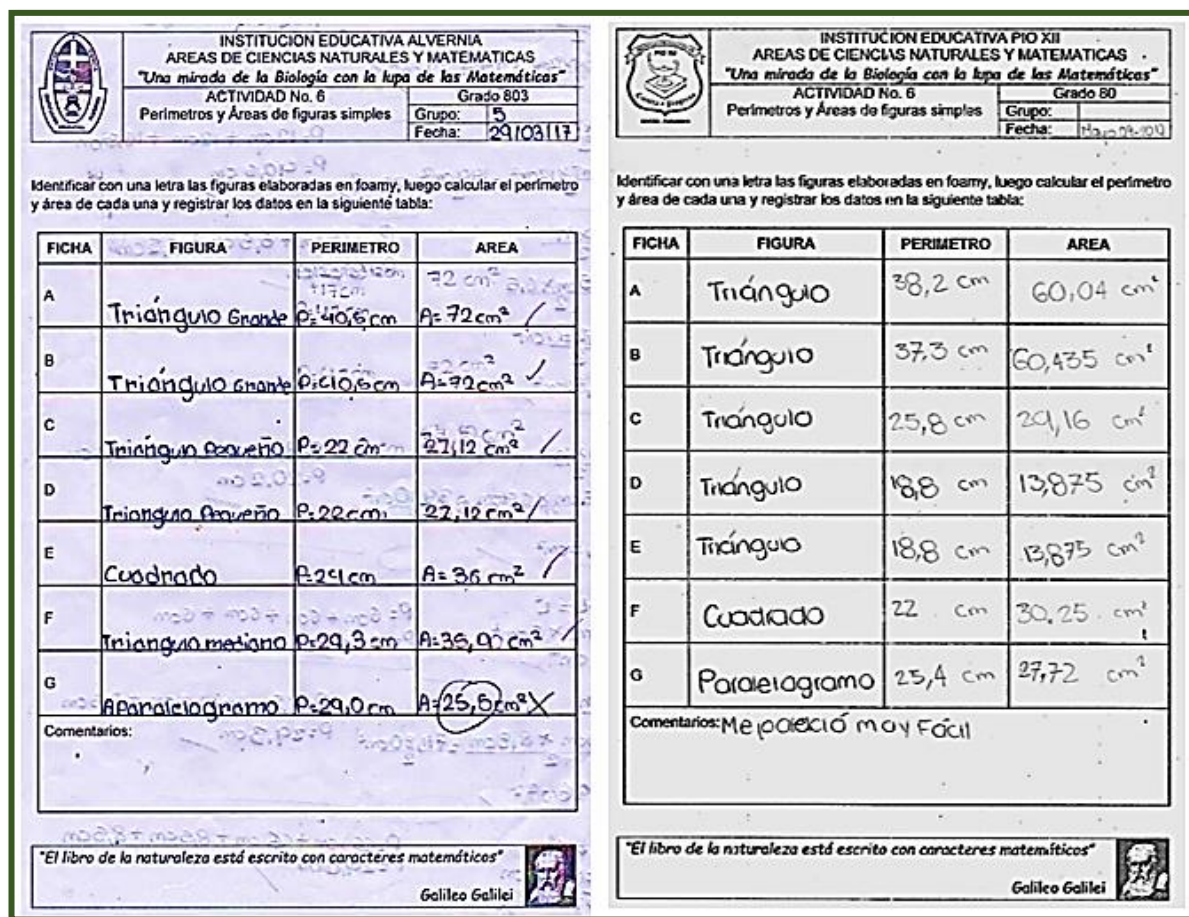 INSTITUCION EDUCATIVA ALVERNIA
AREAS DE CIENCIAS NATURALES Y MATEMATICAS
"Una mirada de la Biología con la lupa de las Matemáticas"
ACTIVIDAD No. 6
Perimetros y Áreas de figuras simples
Grado 803
Grupo: 5
Fecha: 29/03/17
Identificar con una letra las figuras elaboradas en foamy, luego calcular el perimetro
y área de cada una y registrar los datos en la siguiente tabla:
FICHA FIGURA PERIMETRO AREA
72 cm²
A Triángulo Grande P=40,5 cm A=72cm²
B Triángulo Grande P=40,5cm A=72cm²
C Triángulo Pequeño P=22 cm 27,12 cm²
D Triangulo Pequeño P=22cm 27,12cm²
E Cuadrado P=24cm A=36 cm²
F Triangulo mediano P=29,3 cm
G P=29,0cm A=25,5cm²
Comentarios:
"El libro de la naturaleza está escrito con caracteres matemáticos"
Galileo Galilei
PIO XII
INSTITUCION EDUCATIVA PIO XII
AREAS DE CIENCIAS NATURALES Y MATEMATICAS
"Una mirada de la Biología con la lupa de las Matemáticas"
ACTIVIDAD No. 6
Perimetros y Áreas de figuras simples
Grado 80
Grupo:
Fecha:
Identificar con una letra las figuras elaboradas en foamy, luego calcular el perimetro
y área de cada una y registrar los datos en la siguiente tabla:
FICHA FIGURA PERIMETRO AREA
A Triángulo 38,2 cm 60,04 cm²
B Triángulo 37,3 cm 60,435 cm²
C Triángulo 25,8 cm 29,16 cm²
D Triángulo 18,8 cm 13,875 cm²
E Triángulo 18,8 cm 13,875 cm²
F Cuadrado 22 cm 30,25 cm²
G Paralelogramo 25,4 cm 27,72 cm²
Comentarios: Me pareció muy Fácil
"El libro de la naturaleza está escrito con caracteres matemáticos"
Galileo Galilei